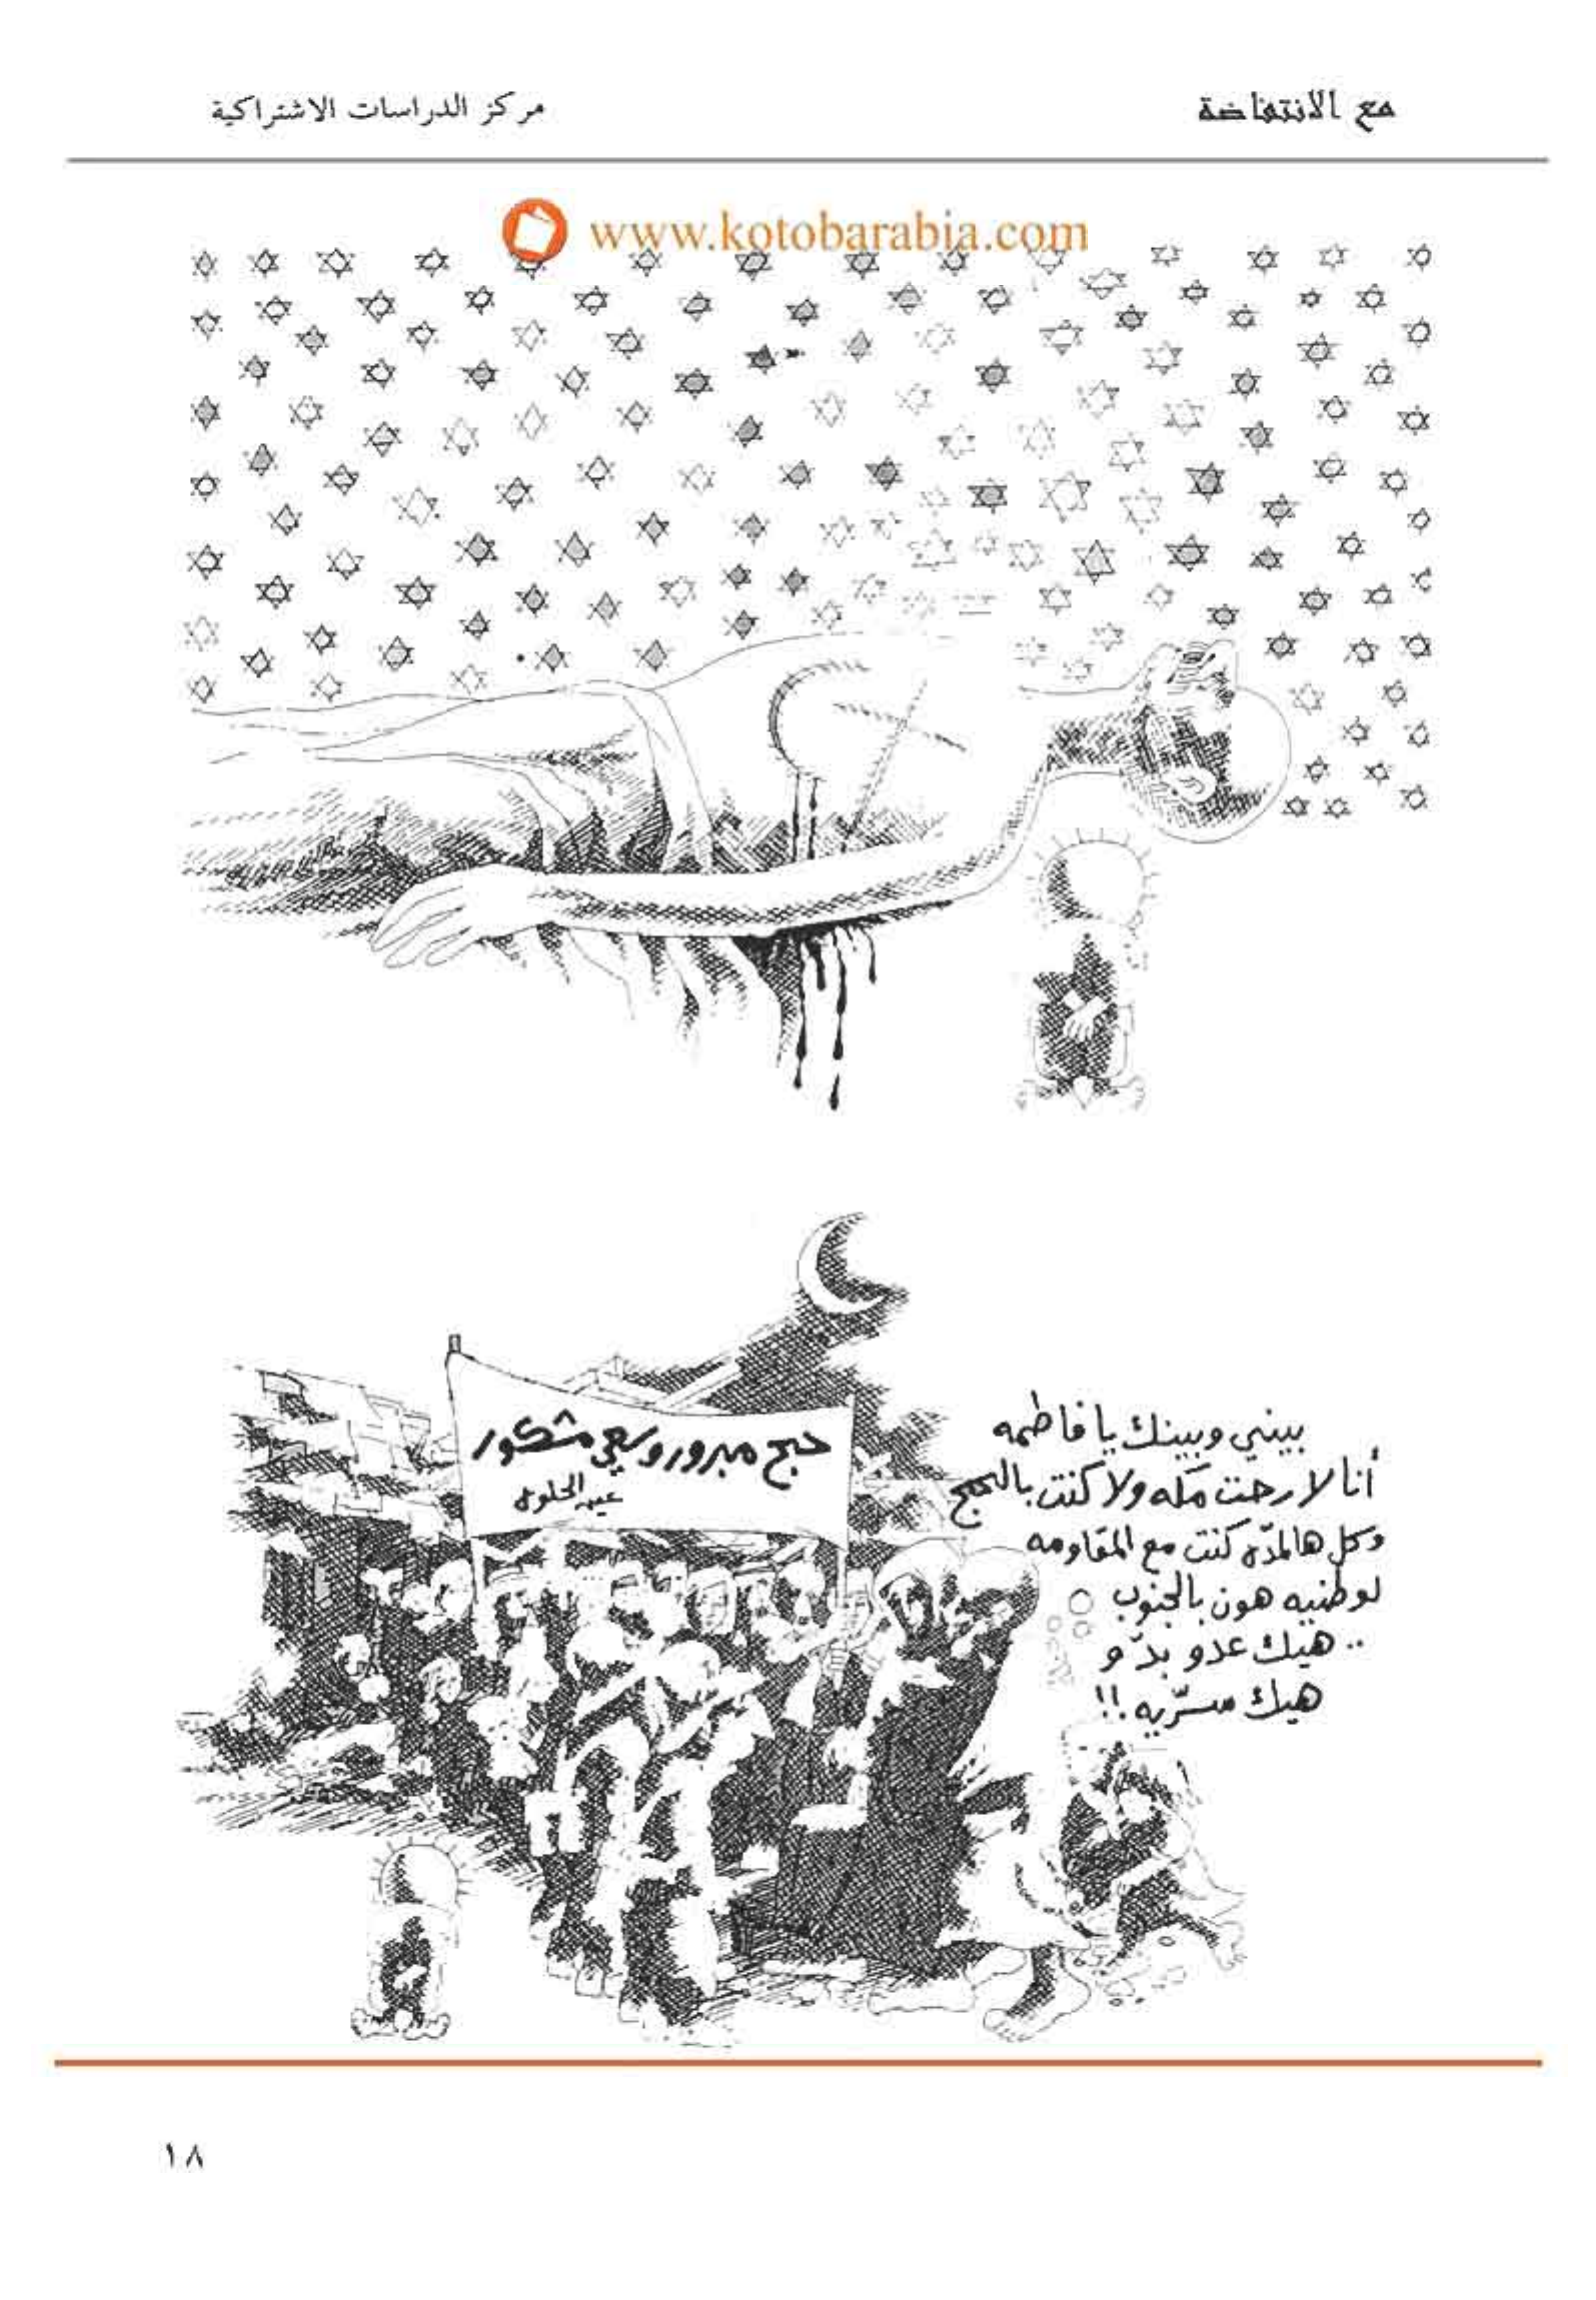 مع الانتفاضة
مركز الدراسات الاشتراكية
www.kotobarabia.com
حج مبرور وسعي مشكور
الحلوة
بيني وبينك يا فاطمه
أنا لا رحت مكه ولا كنت بالحج
وكل هالمدّه كنت مع المقاومه
لوطنيه هون بالجنوب
.. هيك عدو بدّو
هيك سرّيه!!
١٨